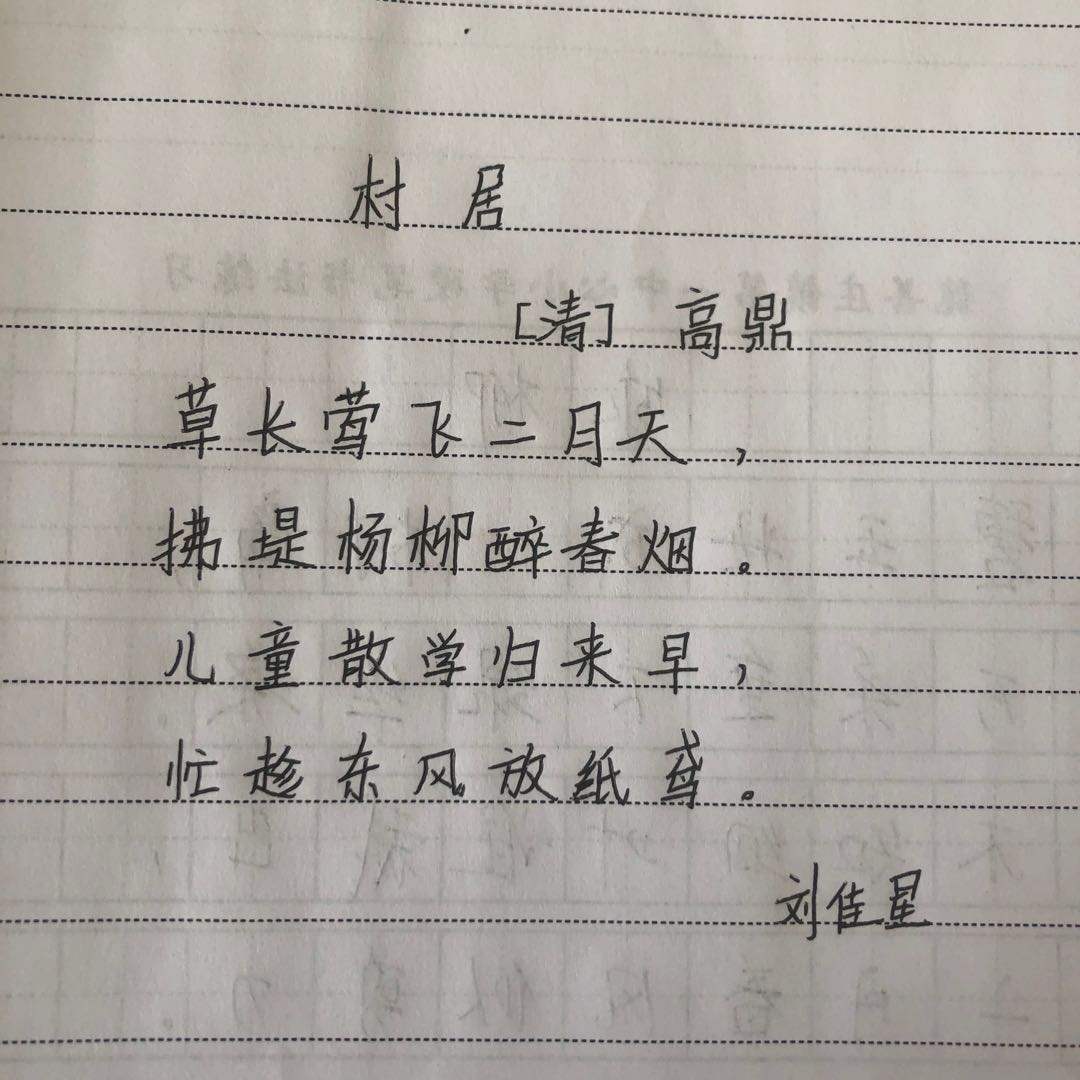 村居
[清] 高鼎
草长莺飞二月天，
拂堤杨柳醉春烟。
儿童散学归来早，
忙趁东风放纸鸢。
刘佳星